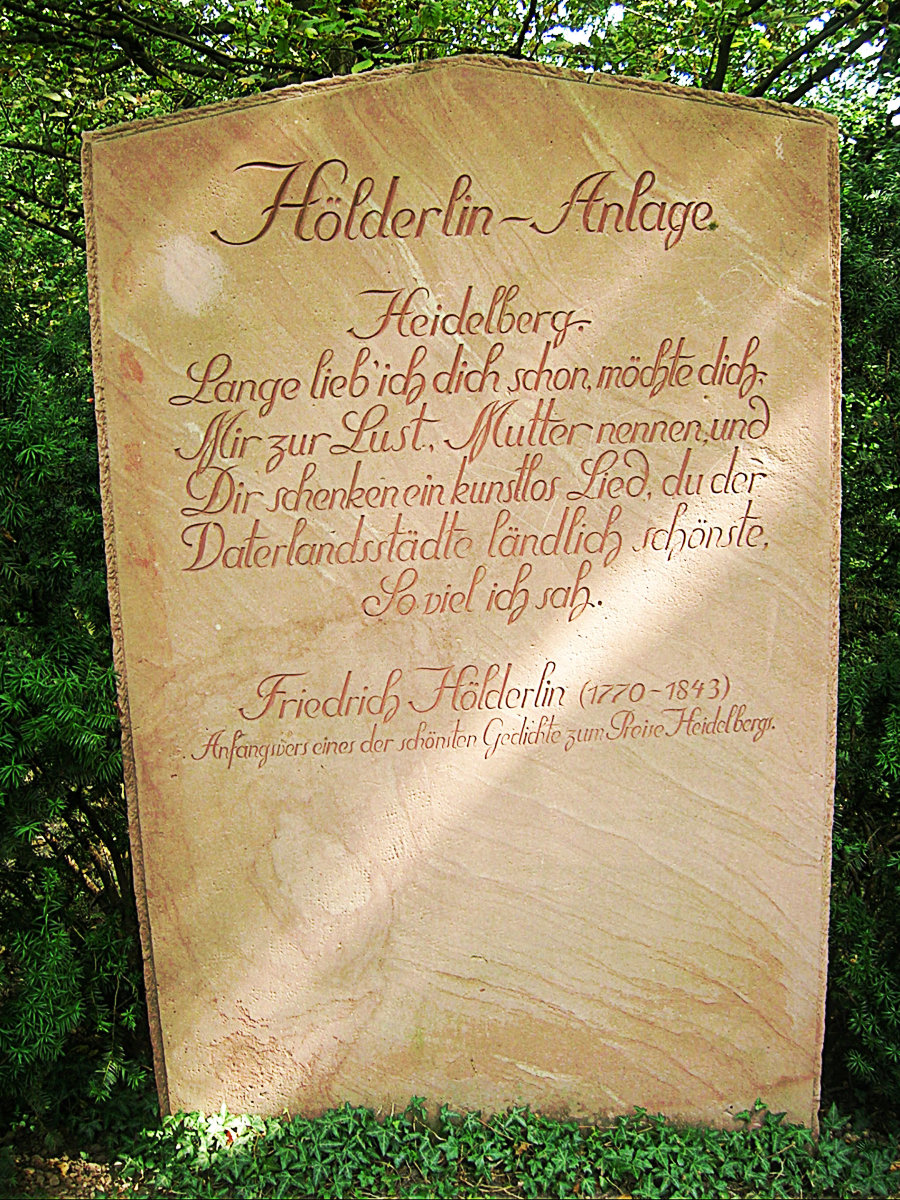 Hölderlin-Anlage
Heidelberg.
Lange lieb' ich dich schon, möchte dich,
Mir zur Lust, Mutter nennen, und
Dir schenken ein kunstlos Lied, du der
Vaterlandsstädte ländlich schönste,
So viel ich sah.
Friedrich Hölderlin (1770-1843)
Anfangsvers eines der schönsten Gedichte zum Preise Heidelbergs.